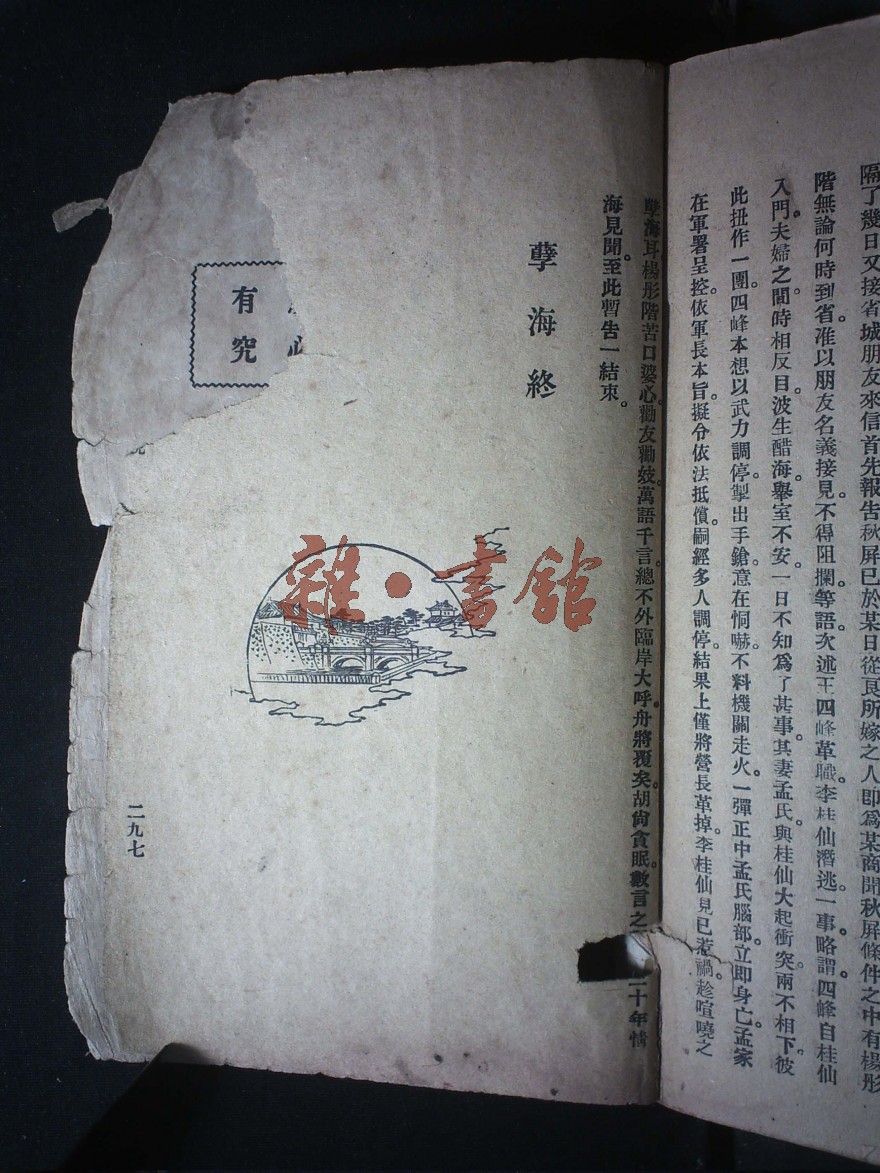 隔了幾日又接省城朋友來信首先報告秋屏已於某日從良所嫁之人卽爲某商聞秋屏條件之中有楊彤
階無論何時到省准以朋友名義接見不得阻攔等語次述王四峰革職李桂仙潛逃一事略謂四峰自桂仙
入門夫婦之間時相反目波生醋海舉室不安一日不知爲了甚事其妻孟氏與桂仙大起衝突兩不相下彼
此扭作一團四峰本想以武力調停掣出手鎗意在恫嚇不料機關走火一彈正中孟氏腦部立卽身亡孟家
在軍署呈控依軍長本旨擬令依法抵償嗣經多人調停結果上僅將營長革掉李桂仙見已惹禍趁喧嘵之
孽海耳楊彤階苦口婆心勸友勸妓萬語千言總不外臨岸大呼舟將覆矣胡尙貪眠數言之二十年情
海見聞至此暫告一結束。
孽海終
有究
二九七
雜·書館